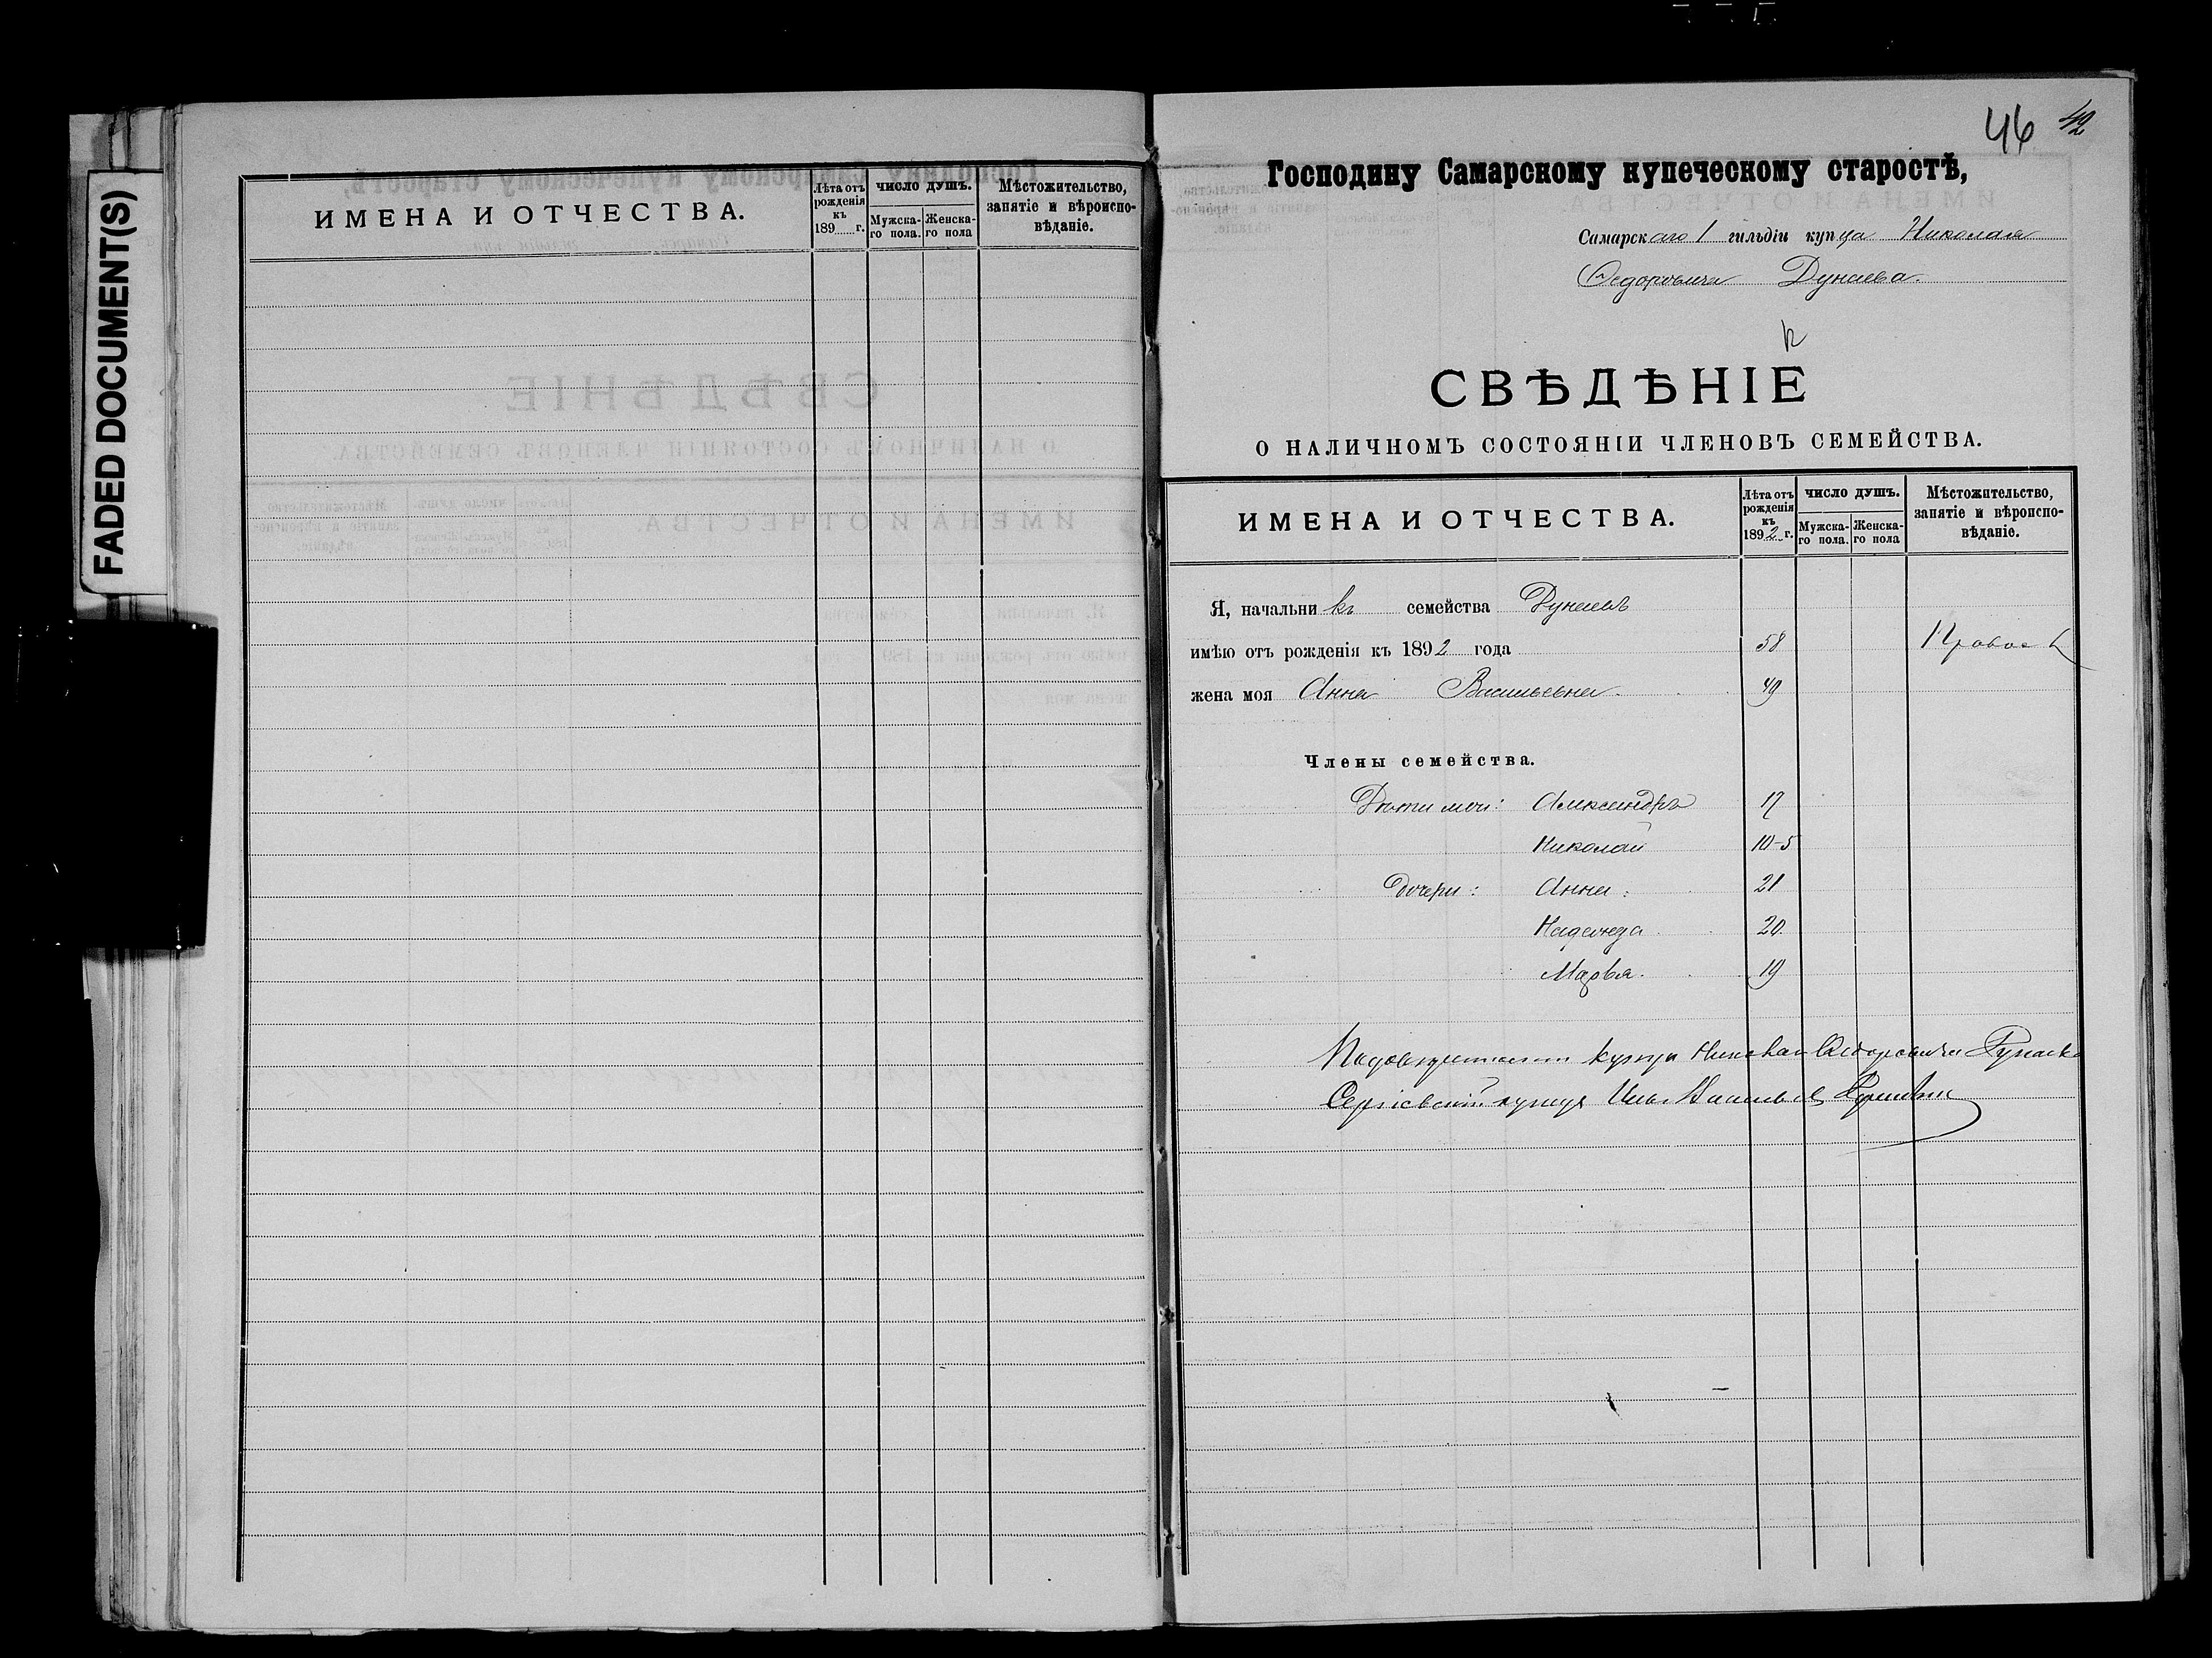 FADED DOCUMENT(S)
ИМЕНА И ОТЧЕСТВА.
Лѣта отъ рожденія къ 189 г.
число душъ.
Мужска-го пола.
Женска-го пола
Мѣстожительство, занятіе и вѣроиспо-вѣданіе.
46 42
Господину Самарскому купеческому старостѣ,
Самарскаго 1 гильдіи купца Николая
Ѳедоровича Дунаева.
СВѢДѢНІЕ
О НАЛИЧНОМЪ СОСТОЯНІИ ЧЛЕНОВЪ СЕМЕЙСТВА.
ИМЕНА И ОТЧЕСТВА.
Лѣта отъ рожденія къ 1892 г.
число душъ.
Мужска-го пола.
Женска-го пола
Мѣстожительство, занятіе и вѣроиспо-вѣданіе.
Я, начальникъ семейства Дунаевъ
имѣю отъ рожденія къ 1892 года 58 Правос
жена моя Анна Васильевна 49
Члены семейства.
Дѣти мои: Александръ 17
Николай 10-5
Дочери: Анна: 21
Надежда 20.
Марья. 19
купца Николая Ѳедоровича Дунаева
Сергіевскій купца